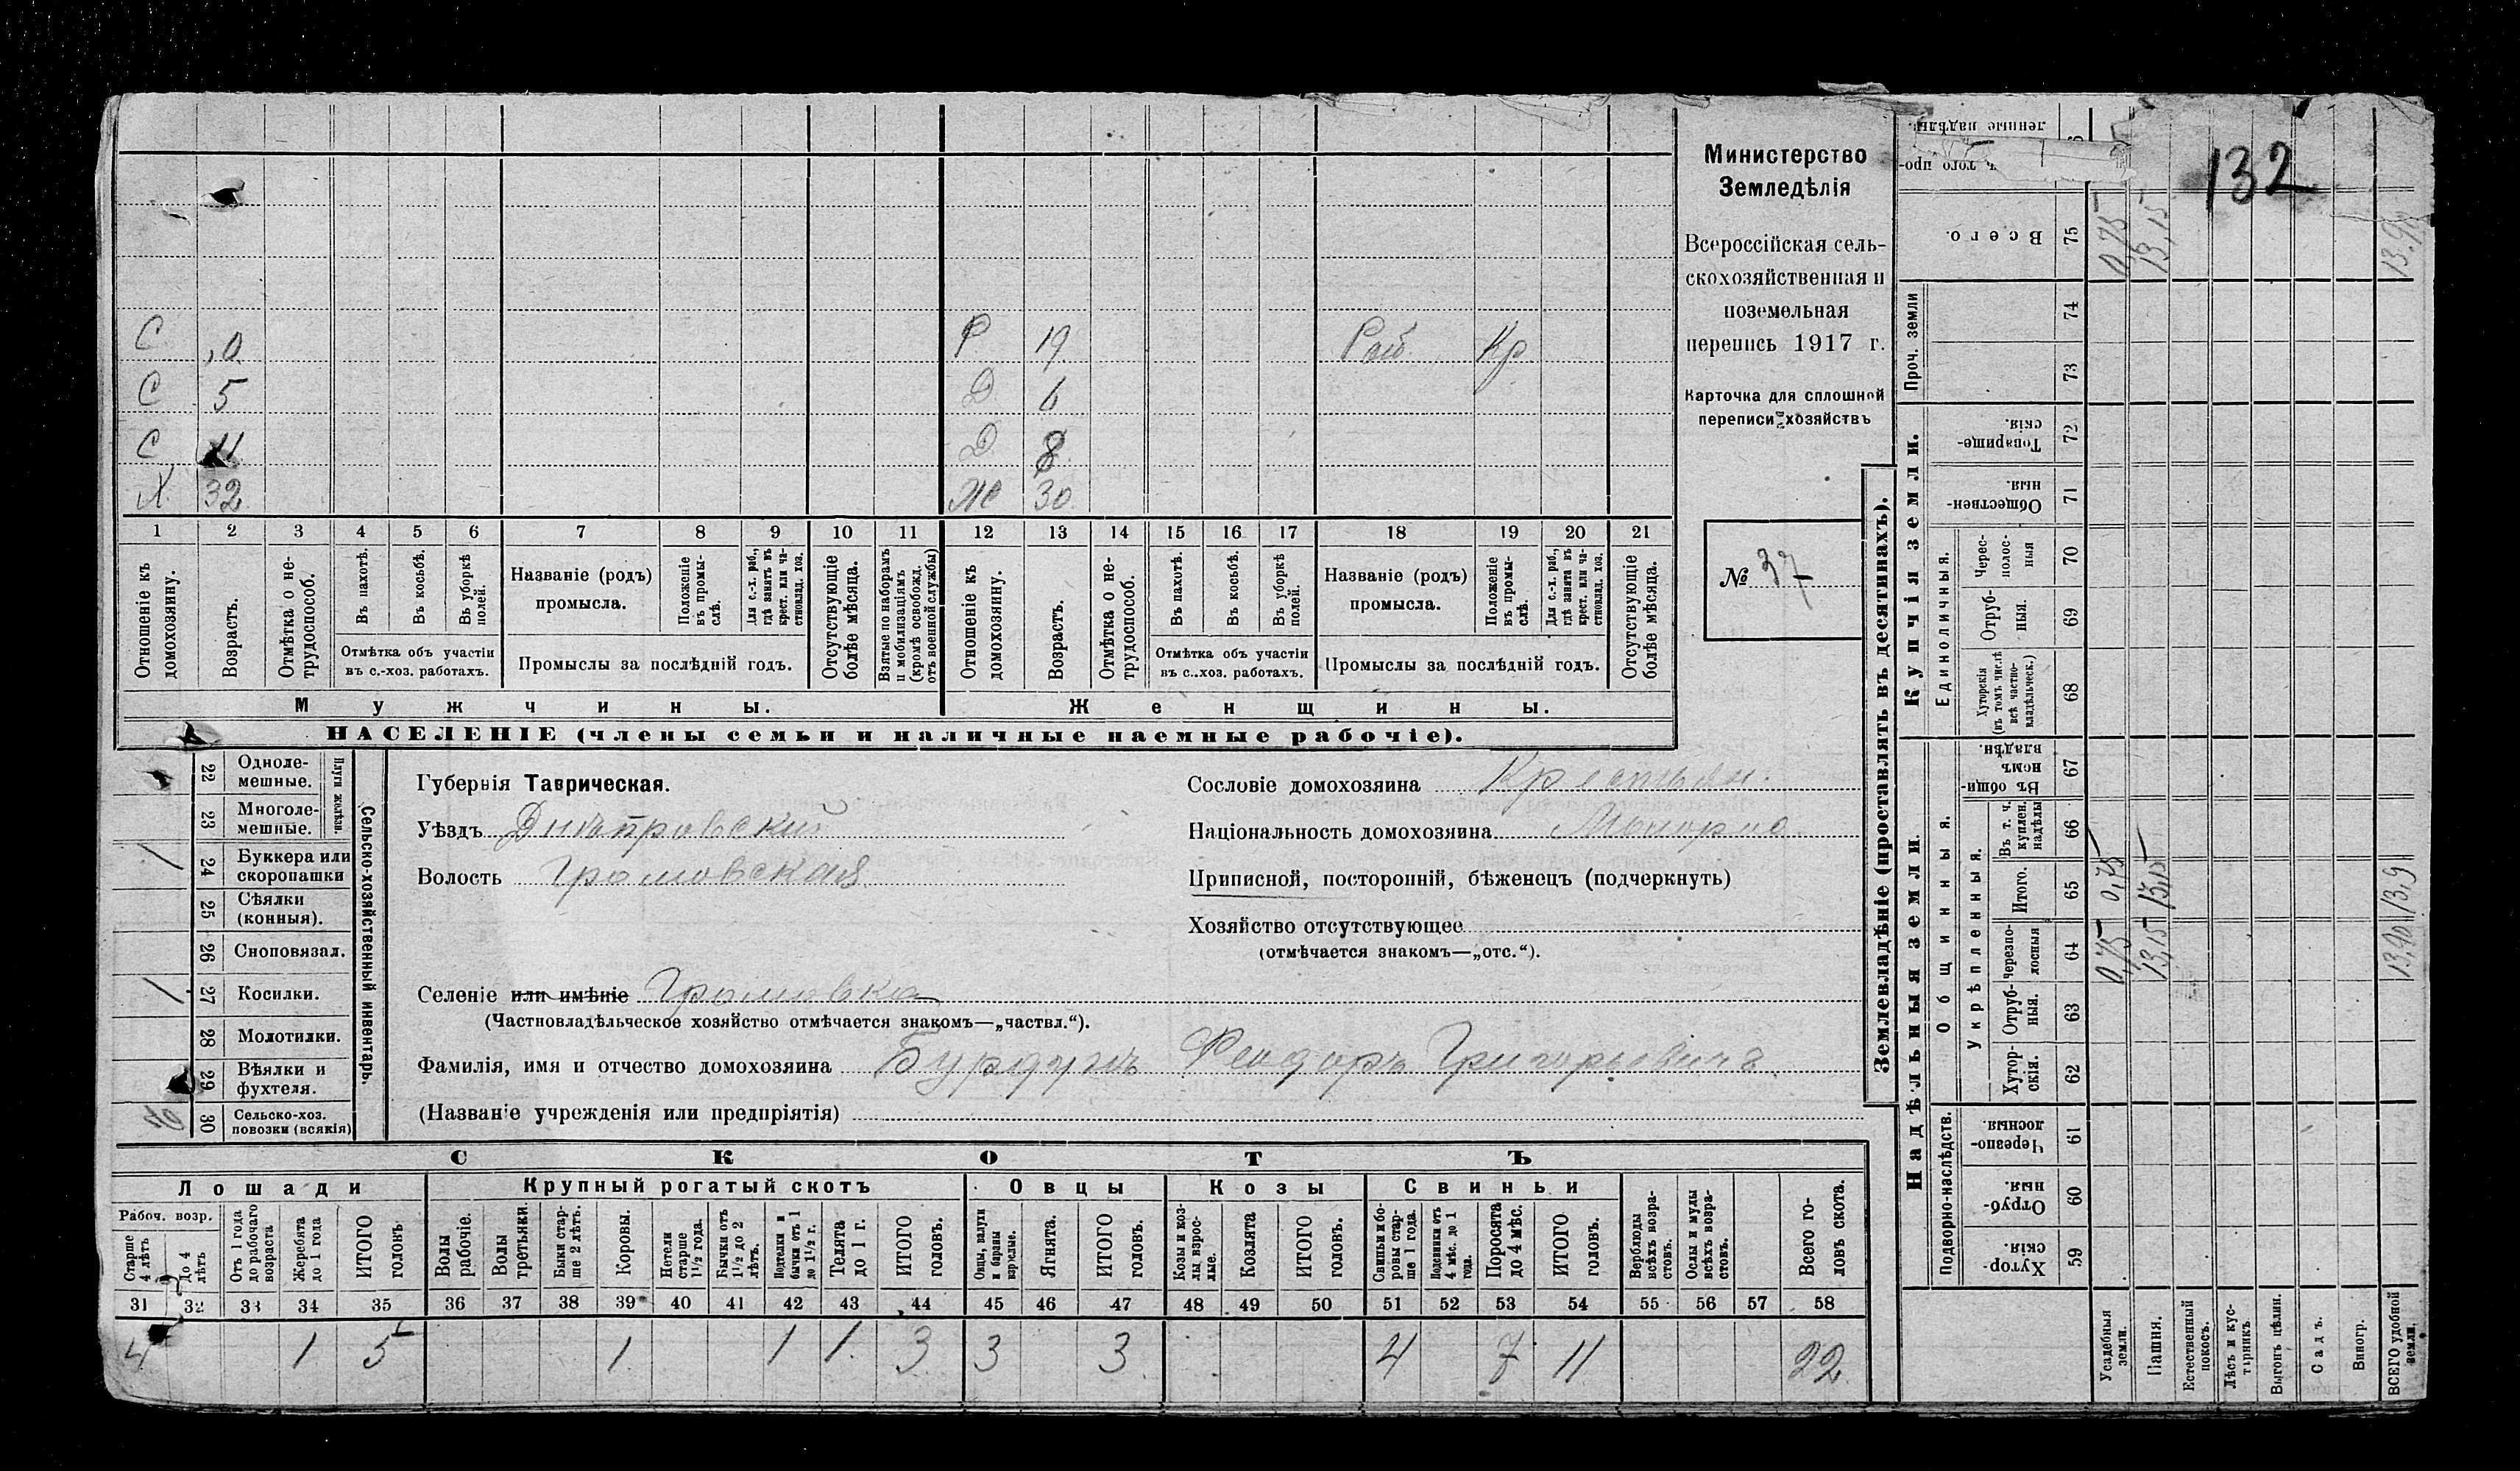 132
Министерство
Земледѣлія
Всероссійская сель-
скохозяйственная и
поземельная
перепись 1917 г.
Карточка для сплошной
переписи хозяйствъ
№ 37
С 0 Р 19 Раб Кр
С 5 Д 6
С 11 Д 8
Х 32 Ж 30
1 2 3 4 5 6 7 8 9 10 11 12 13 14 15 16 17 18 19 20 21
Отношеніе къ домохозяину.
Возрастъ.
Отмѣтка о не-трудоспособ.
Въ пахотѣ.
Въ косьбѣ.
Въ уборкѣ полей.
Отмѣтка объ участіи
въ с.-хоз. работахъ.
Названіе (родъ)
промысла.
Положеніе въ промы-слѣ.
Для с.-х. раб., гдѣ занятъ въ крест. или ча-стновлад. хоз.
Промыслы за послѣдній годъ.
Отсутствующіе болѣе мѣсяца.
Взятые по наборамъ и мобилизаціямъ (кромѣ освобожд. отъ военной службы)
Отношеніе къ домохозяину.
Возрастъ.
Отмѣтка о не-трудоспособ.
Въ пахотѣ.
Въ косьбѣ.
Въ уборкѣ полей.
Отмѣтка объ участіи
въ с..хоз. работахъ.
Названіе (родъ)
промысла.
Положеніе въ промы-слѣ.
Для с.-х. раб., гдѣ занята въ крест. или ча-стновлад. хоз.
Промыслы за послѣдній годъ.
Отсутствующіе болѣе мѣсяца.
Мужчины. Женщины.
НАСЕЛЕНІЕ (члены семьи и наличные наемные рабочіе).
Сельско-хозяйственный инвентарь.
Плуги желѣзн.
22 Одноле-мешные.
23 Многоле-мешные.
/ 24 Буккера или скоропашки
25 Сѣялки (конныя).
26 Сноповязал.
/ 27 Косилки.
28 Молотилки.
29 Вѣялки и фухтеля.
30 Сельско-хоз. повозки (всякія)
Губернія Таврическая.
Уѣздъ Днѣпровскій
Волость Громовская
Сословіе домохозяина Крестьян.
Національность домохозяина Малорос
Приписной, посторонній, бѣженецъ (подчеркнуть)
Хозяйство отсутствующее
(отмѣчается знакомъ—„отс.“).
Селеніе или имѣніе Громовка
(Частновладѣльческое хозяйство отмѣчается знакомъ—„частвл.“).
Фамилія, имя и отчество домохозяина Бурдунъ Феодоръ Григорьевичъ
(Названіе учрежденія или предпріятія)
СКОТЪ
Лошади Крупный рогатый скотъ Овцы Козы Свиньи
Рабоч. возр.
Старше 4 лѣтъ
До 4 лѣтъ
Отъ 1 года до рабочаго возраста
Жеребята до 1 года
ИТОГО головъ
Волы рабочіе.
Волы третьяки.
Быки стар-ше 2 лѣтъ.
Коровы.
Нетели старше 1½ года.
Бычки отъ 1½ до 2 лѣтъ.
Подтелки и бычки отъ 1 до 1½ г.
Телята до 1 г.
ИТОГО головъ.
Овцы, валухи и бараны взрослые.
Ягнята.
ИТОГО головъ.
Козы и коз-лы, взрос-лые.
Козлята
ИТОГО головъ.
Свиньи и бо-ровы стар-ше 1 года.
Подсвинки отъ 4 мѣс. до 1 года.
Поросята до 4 мѣс.
ИТОГО головъ.
Верблюды всѣхъ возра-стовъ.
Ослы и мулы всѣхъ возра-стовъ.
Всего го-ловъ скота.
31 32 33 34 35 36 37 38 39 40 41 42 43 44 45 46 47 48 49 50 51 52 53 54 55 56 57 58
4 1 5 1 1 1 3 3 3 4 7 11 22
Землевладѣніе (проставлять въ десятинахъ).
Надѣльныя земли. Купчія земли. Проч. земли
Подворно-наслѣдств. Общинныя. Единоличныя.
Укрѣпленныя.
Хутор-скія. 59
Отруб-ныя. 60
Черезпо-лосныя. 61
Хутор-скія. 62
Отруб-ныя. 63
Черезпо-лосныя 64
Итого. 65
Въ т. ч. куплен. надѣлы 66
Въ общи-номъ владѣн. 67
Хуторскія (въ томъ числѣ всѣ частно-владѣльческ.) 68
Отруб-ныя. 69
Черес-полос-ныя 70
Обществен-ныя. 71
Товарище-скія. 72
73
74
Всего. 75
Усадебныя земли. 0,75 0,75 0,75
Пашня. 13,15 13,15 13,15
Естественный покосъ.
Лѣсъ и кус-тарникъ
Выгонъ цѣлин.
Садъ.
Виногр.
ВСЕГО удобной земли. 13,90 13,9 13,90